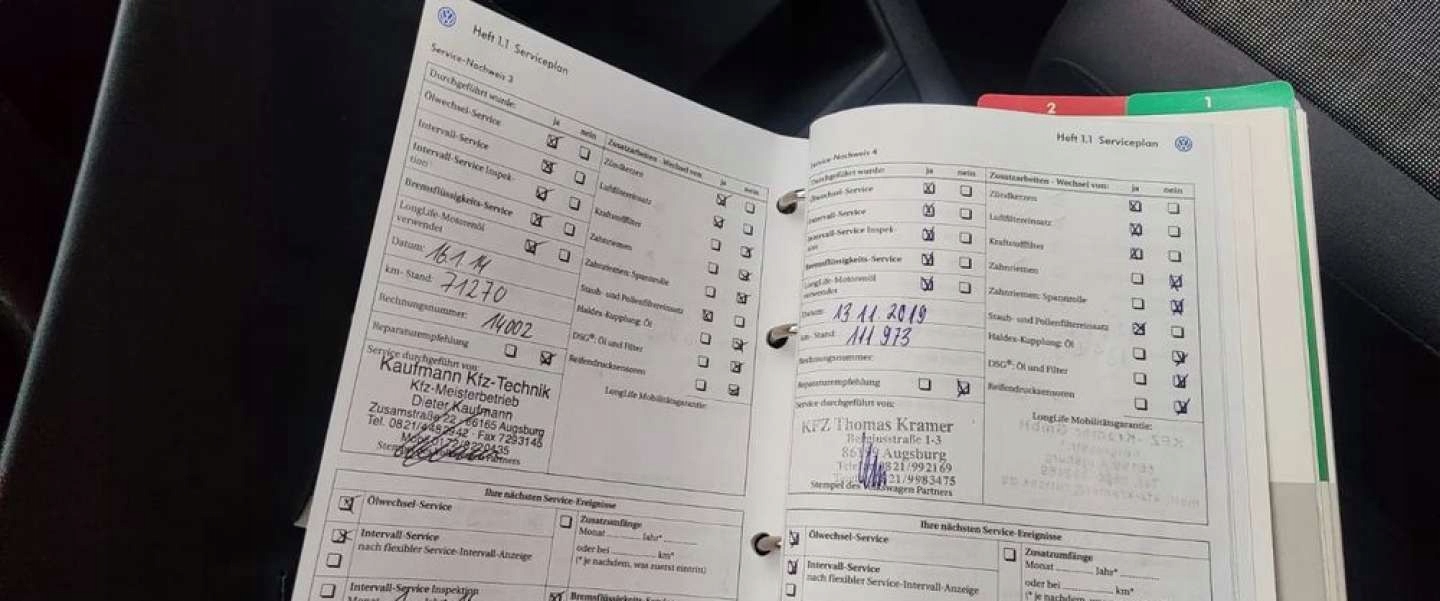 Heft 1.1 Serviceplan
Service-Nachweis 3
Durchgeführt wurde: ja nein
Ölwechsel-Service
Intervall-Service
Intervall-Service Inspek-
tion
Bremsflüssigkeits-Service
LongLife-Motorenöl
verwendet
Datum: 16.1.14
km-Stand: 71270
Rechnungsnummer: 14002
Reparaturempfehlung
Service durchgeführt von:
Kaufmann Kfz-Technik
Kfz-Meisterbetrieb
Dieter Kaufmann
Zusamstraße 22 / 86165 Augsburg
Tel. 0821/4482942 · Fax 7293145
Mobil 0172/8220435
Zusatzarbeiten - Wechsel von: ja nein
Zündkerzen
Luftfiltereinsatz
Kraftstofffilter
Zahnriemen
Zahnriemen: Spannrolle
Staub- und Pollenfiltereinsatz
Haldex-Kupplung: Öl
DSG®: Öl und Filter
Reifendrucksensoren
LongLife Mobilitätsgarantie:
Ihre nächsten Service-Ereignisse
Ölwechsel-Service
Intervall-Service
nach flexibler Service-Intervall-Anzeige
Intervall-Service Inspektion
Zusatzumfänge
Monat ............ Jahr* ............
oder bei ............ km*
(* je nachdem, was zuerst eintritt)
2
1
Heft 1.1 Serviceplan
Service-Nachweis 4
Durchgeführt wurde: ja nein
Ölwechsel-Service
Intervall-Service
Intervall-Service Inspek-
tion
Bremsflüssigkeits-Service
LongLife-Motorenöl
verwendet
Datum: 13 11. 2019
km-Stand: 111 973
Rechnungsnummer:
Reparaturempfehlung
Service durchgeführt von:
KFZ Thomas Kramer
Bergiusstraße 1-3
Augsburg
0821/992169
Stempel des Volkswagen Partners
Zusatzarbeiten - Wechsel von: ja nein
Zündkerzen
Luftfiltereinsatz
Kraftstofffilter
Zahnriemen
Zahnriemen: Spannrolle
Staub- und Pollenfiltereinsatz
Haldex-Kupplung: Öl
DSG®: Öl und Filter
Reifendrucksensoren
LongLife Mobilitätsgarantie:
Ihre nächsten Service-Ereignisse
Ölwechsel-Service
Intervall-Service
nach flexibler Service-Intervall-Anzeige
Zusatzumfänge
Monat ............ Jahr* ............
oder bei ............ km*